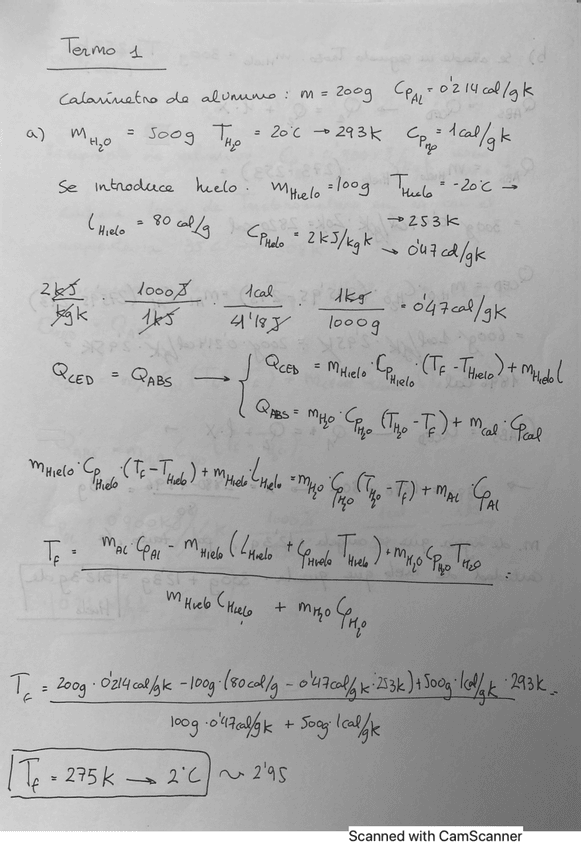 Termo 1
Calorímetro de aluminio: m = 200g CpAl = 0'214 cal/gk
a) mH2O = 500g TH2O = 20°C → 293k CpH2O = 1cal/gk
Se introduce hielo. mHielo = 100g THielo = -20°C →
→ 253k
LHielo = 80 cal/g CpHielo = 2kJ/kgk → 0'47cal/gk
2kJ/kgk · 1000J/1kJ · 1cal/4'18J · 1kg/1000g = 0'47cal/gk
QCED = QABS → { QCED = mHielo · CpHielo · (TF - THielo) + mHielo L
QABS = mH2O · CpH2O (TH2O - TF) + mcal · Cpcal
mHielo · CpHielo · (Tf - THielo) + mHielo · LHielo = mH2O · CpH2O (TH2O - Tf) + mAl · CpAl
Tf = mAl CpAl - mHielo (LHielo + CpHielo THielo) + mH2O CpH2O TH2O / mHielo CHielo + mH2O CpH2O =
Tf = 200g · 0'214cal/gk - 100g · (80cal/g - 0'47cal/gk · 253k) + 500g · 1cal/gk · 293k / 100g · 0'47cal/gk + 500g · 1cal/gk =
Tf = 275k → 2°C ~ 2'95
Scanned with CamScanner